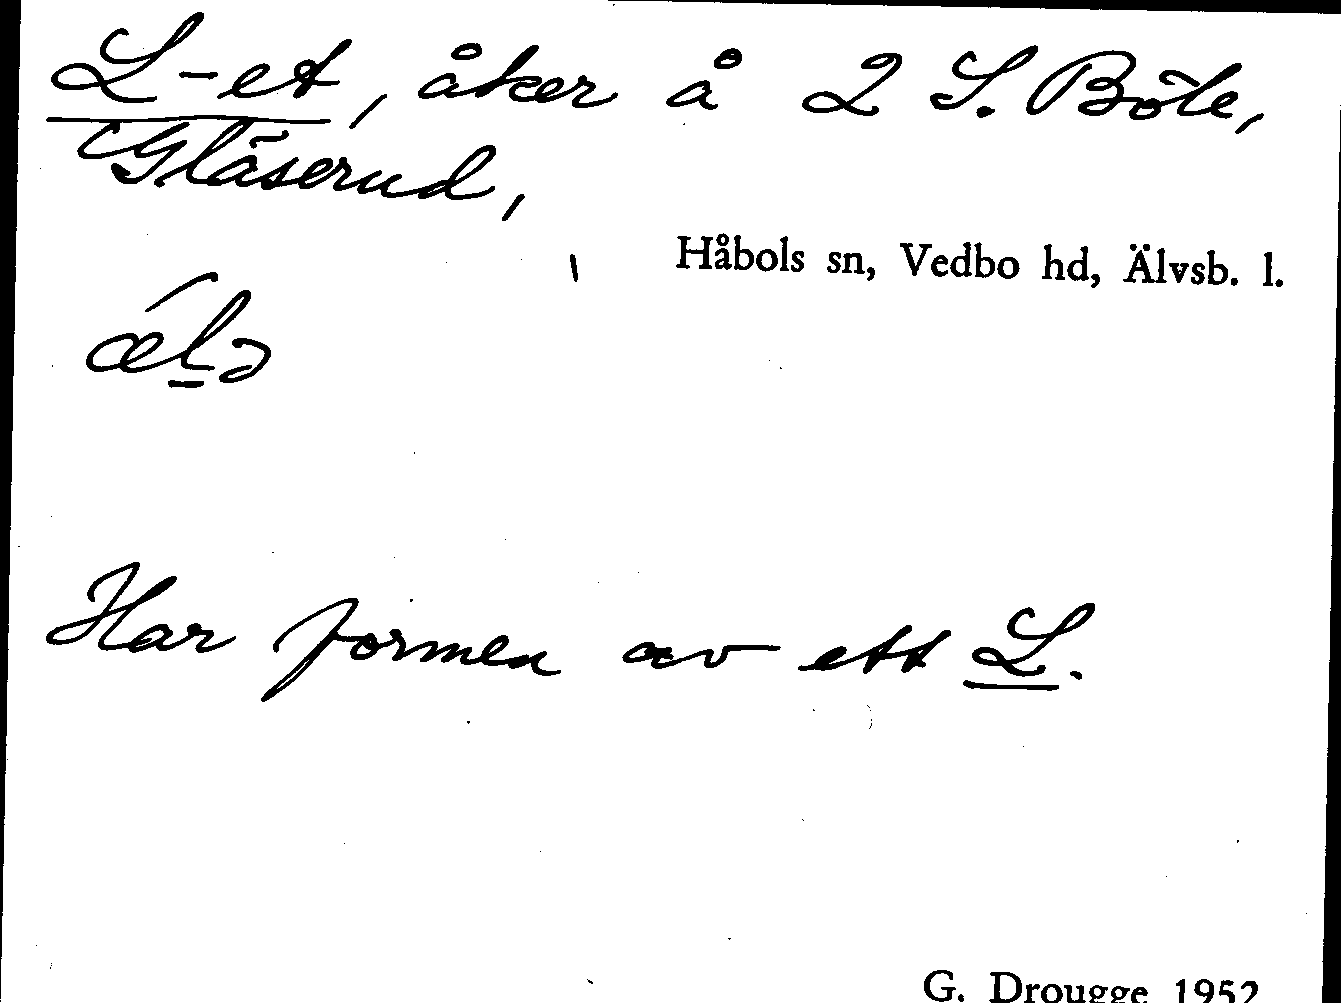 L-et, åker å 2 S. Böle,
Gläserud,
Håbols sn, Vedbo hd, Älvsb. l.
ǽl̠ə
Har formen av ett L.
G. Drougge 1952